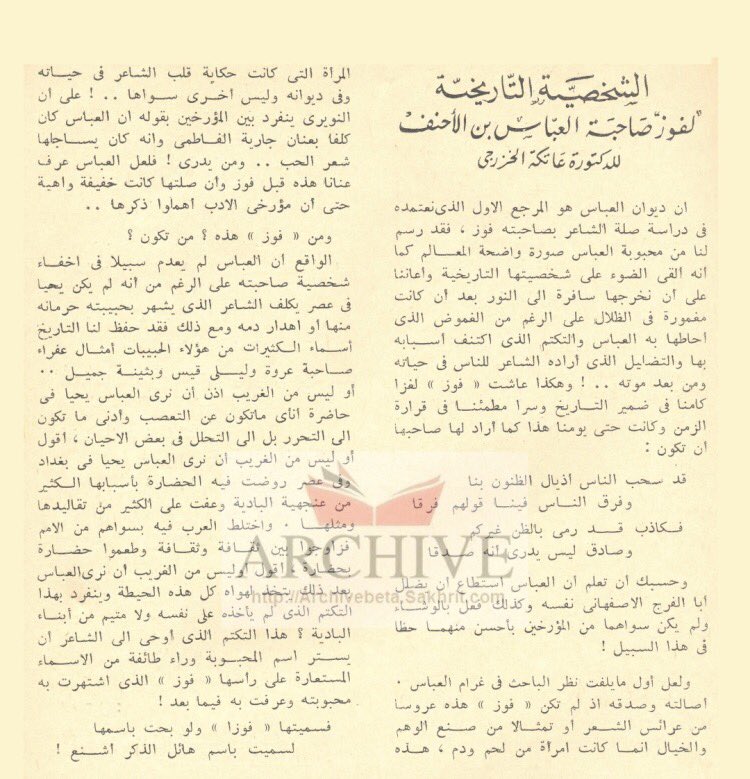 الشخصية التاريخية
لفوز صاحبة العباس بن الأحنف
للدكتورة عاتكة الخزرجي
ان ديوان العباس هو المرجع الاول الذى نعتمده
فى دراسة صلة الشاعر بصاحبته فوز ، فقد رسم
لنا من محبوبة العباس صورة واضحة المعالم كما
أنه ألقى الضوء على شخصيتها التاريخية وأعاننا
على أن نخرجها سافرة الى النور بعد أن كانت
مغمورة فى الظلال على الرغم من الغموض الذى
أحاطها به العباس والتكتم الذى اكتنف أسبابه
بها والتضليل الذى أراده الشاعر للناس فى حياته
ومن بعد موته .. ! وهكذا عاشت « فوز » لغزا
كامنا فى ضمير التاريخ وسرا مطمئنا فى قرارة
الزمن وكانت حتى يومنا هذا كما أراد لها صاحبها
أن تكون :
قد سحب الناس أذيال الظنون بنا
وفرق الناس فينا قولهم فرقا
فكاذب قد رمى بالظن غيركم
وصادق ليس يدرى أنه صدقا
وحسبك ان تعلم ان العباس استطاع ان يضلل
أبا الفرج الاصفهانى نفسه وكذلك فعل بالوشاء
ولم يكن سواهما من المؤرخين بأحسن منهما حظا
فى هذا السبيل !
ولعل أول مايلفت نظر الباحث فى غرام العباس .
أصالته وصدقه اذ لم تكن « فوز » هذه عروسا
من عرائس الشعر أو تمثالا من صنع الوهم
والخيال انما كانت امرأة من لحم ودم ، هذه
المرأة التى كانت حكاية قلب الشاعر فى حياته
وفى ديوانه وليس أخرى سواها .. ! على أن
النويرى ينفرد بين المؤرخين بقوله ان العباس كان
كلفا بعنان جارية الفاطمى وانه كان يساجلها
شعر الحب .. ومن يدرى ! فلعل العباس عرف
عنانا هذه قبل فوز وأن صلتها كانت خفيفة واهية
حتى أن مؤرخى الادب أهملوا ذكرها ..
ومن « فوز » هذه ؟ من تكون ؟
الواقع ان العباس لم يعدم سبيلا فى اخفاء
شخصية صاحبته على الرغم من أنه لم يكن يحيا
فى عصر يكلف الشاعر الذى يشهر بحبيبته حرمانه
منها أو اهدار دمه ومع ذلك فقد حفظ لنا التاريخ
أسماء الكثيرات من هؤلاء الحبيبات أمثال عفراء
صاحبة عروة وليلى قيس وبثينة جميل ..
أو ليس من الغريب اذن أن نرى العباس يحيا فى
حاضرة أنأى ماتكون عن التعصب وأدنى ما تكون
الى التحرر بل الى التحلل فى بعض الاحيان ، أقول
أو ليس من الغريب أن نرى العباس يحيا فى بغداد
وفى عصر روضت فيه الحضارة بأسبابها الكثير
من عنجهية البادية وعفت على الكثير من تقاليدها
ومثلها . واختلط العرب فيه بسواهم من الامم
فزاوجوا بين ثقافة وثقافة وطعموا حضارة
بحضارة ، أقول أوليس من الغريب أن نرى العباس
بعد ذلك يتخذ لهواه كل هذه الحيطة وينفرد بهذا
التكتم الذى لم يأخذه على نفسه ولا متيم من أبناء
البادية ؟ هذا التكتم الذى أوحى الى الشاعر أن
يستر اسم المحبوبة وراء طائفة من الاسماء
المستعارة على رأسها « فوز » الذى اشتهرت به
محبوبته وعرفت به فيما بعد !
فسميتها « فوزا » ولو بحت باسمها
لسميت باسم هائل الذكر أشنع !
ARCHIVE
http://Archivebeta.Sakhrit.com